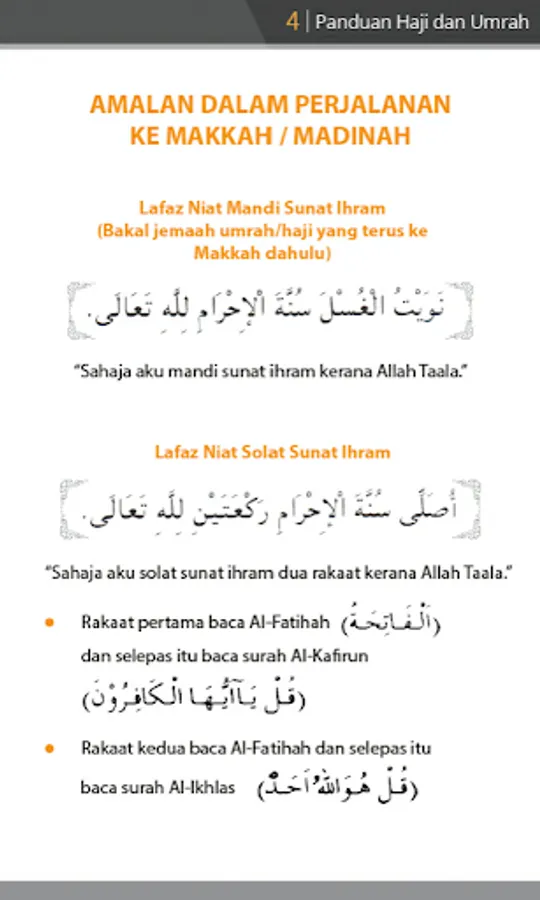 4 | Panduan Haji dan Umrah
AMALAN DALAM PERJALANAN
KE MAKKAH / MADINAH
Lafaz Niat Mandi Sunat Ihram
(Bakal jemaah umrah/haji yang terus ke
Makkah dahulu)
نَوَيْتُ الْغُسْلَ سُنَّةَ الْإِحْرَامِ لِلَّهِ تَعَالَى.
“Sahaja aku mandi sunat ihram kerana Allah Taala.”
Lafaz Niat Solat Sunat Ihram
أُصَلِّى سُنَّةَ الْإِحْرَامِ رَكْعَتَيْنِ لِلَّهِ تَعَالَى.
“Sahaja aku solat sunat ihram dua rakaat kerana Allah Taala.”
• Rakaat pertama baca Al-Fatihah (اَلْفَاتِحَةُ)
dan selepas itu baca surah Al-Kafirun
(قُلْ يَآأَيُّهَا الْكَافِرُوْنَ)
• Rakaat kedua baca Al-Fatihah dan selepas itu
baca surah Al-Ikhlas (قُلْ هُوَ اللهُ اَحَدٌ)